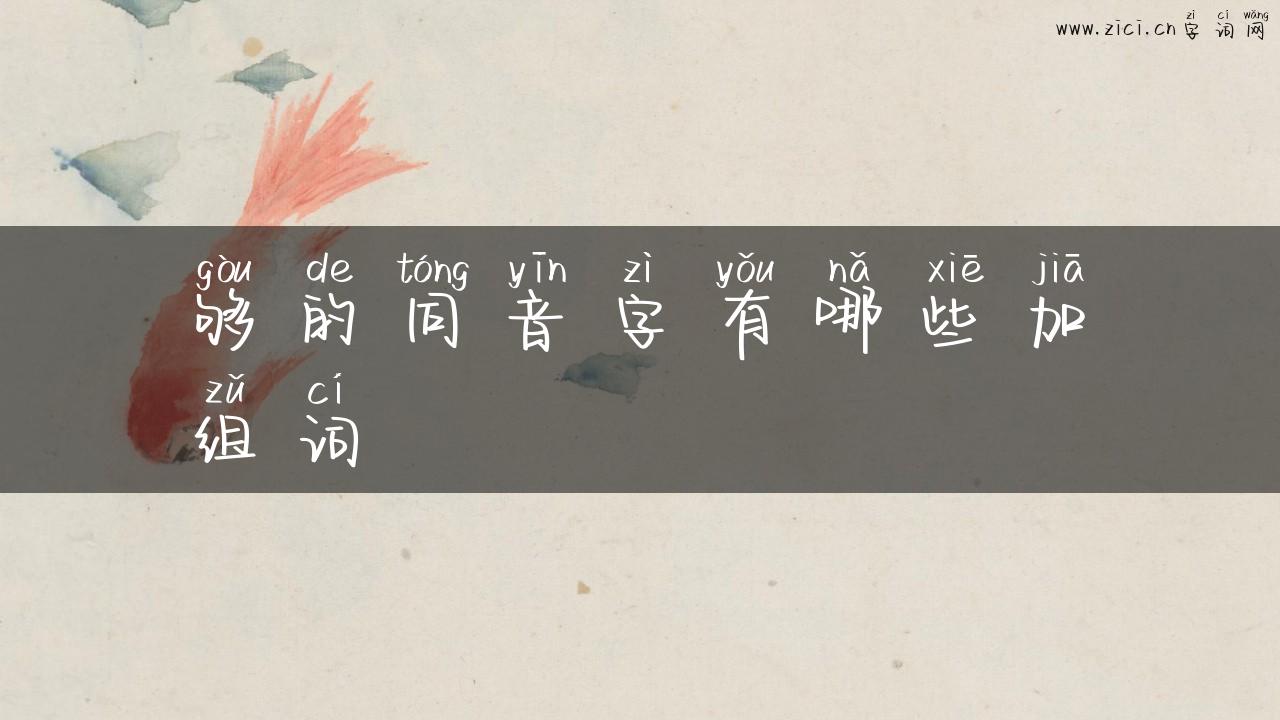 zì cí wǎng
www.zici.cn 字词网
gòu de tóng yīn zì yǒu nǎ xiē jiā
够的同音字有哪些加
zǔ cí
组词